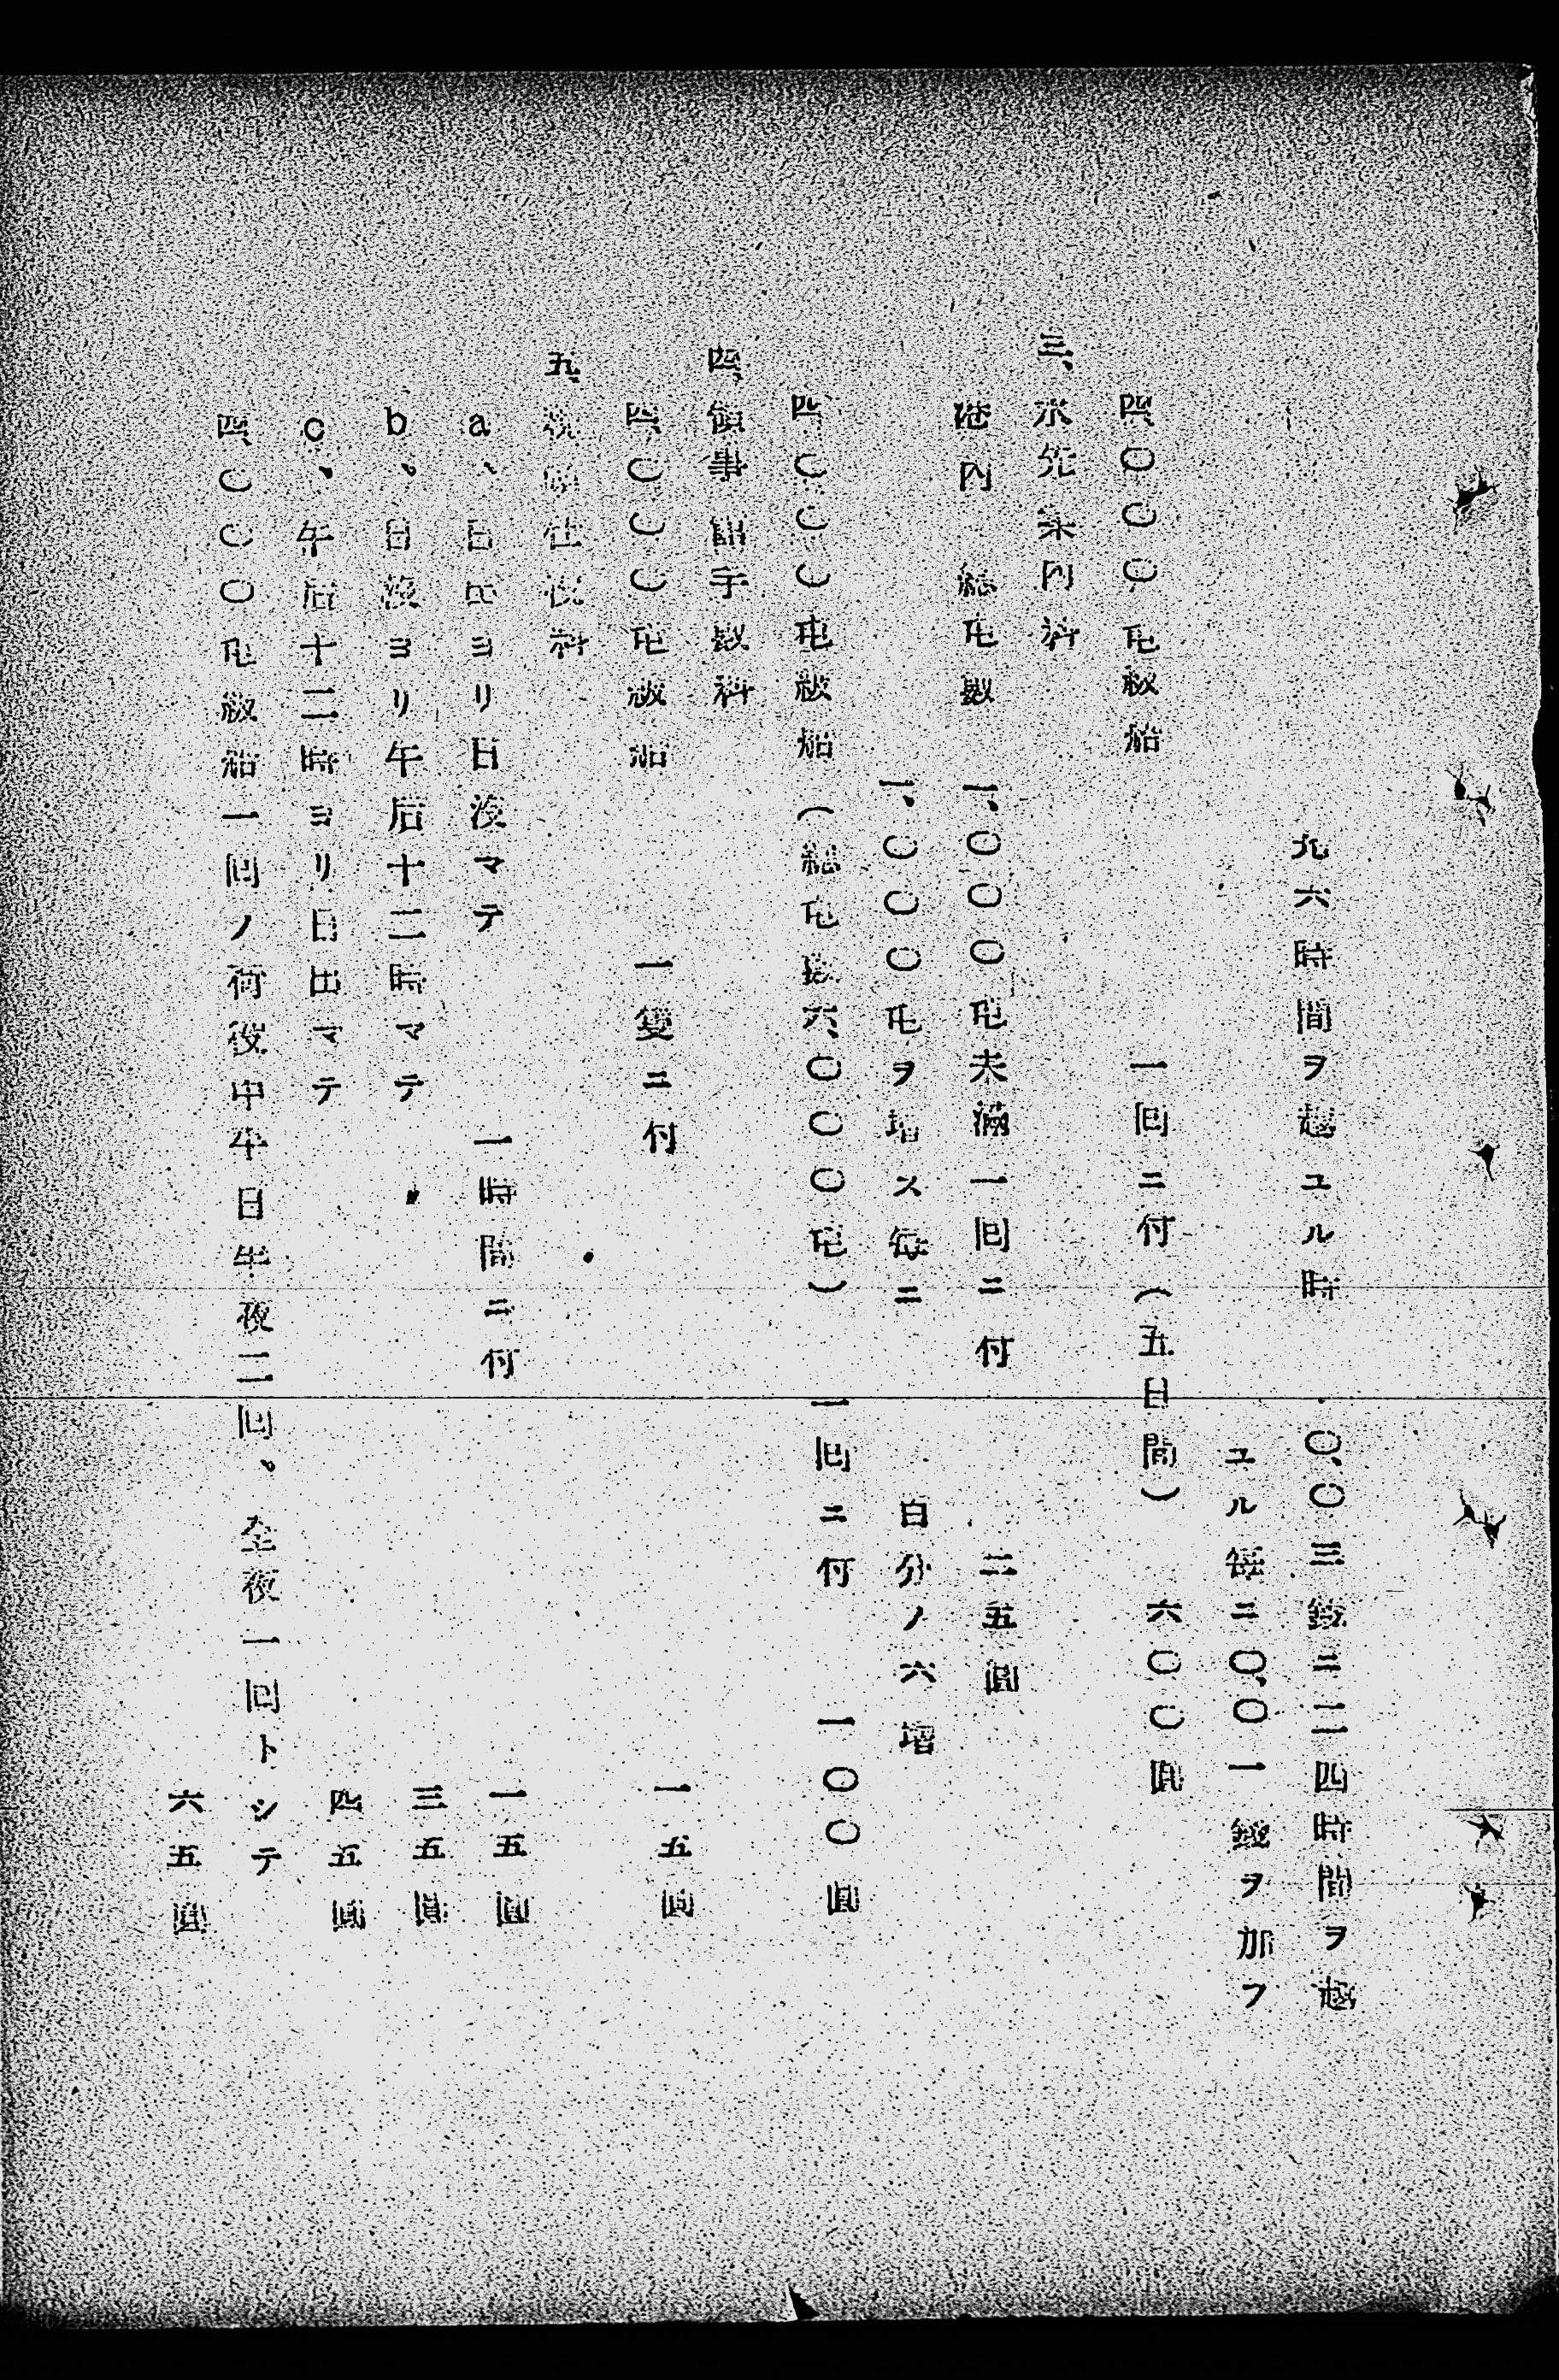 九六時間ヲ越ユル時 〇、〇三錢ニ二四時間ヲ越
ユル毎ニ〇、〇一錢ヲ加フ
四、〇〇〇屯級船 一回ニ付(五日間) 六〇〇圓
三、水先案内料
港内 総屯数 一、〇〇〇屯未満一回ニ付 二五圓
一、〇〇〇屯ヲ増ス毎ニ 百分ノ六増
四、〇〇〇屯級船(総屯数六、〇〇〇屯) 一回ニ付 一〇〇圓
四、領事館手数料
四、〇〇〇屯級船 一隻ニ付 一五圓
五、税関仕役料
a、日出ヨリ日没マテ 一時間ニ付 一五圓
b、日没ヨリ午后十二時マテ 〃 三五圓
c、午后十二時ヨリ日出マテ 四五圓
四、〇〇〇屯級船一回ノ荷役中半日半夜二回、全夜一回トシテ
六五圓